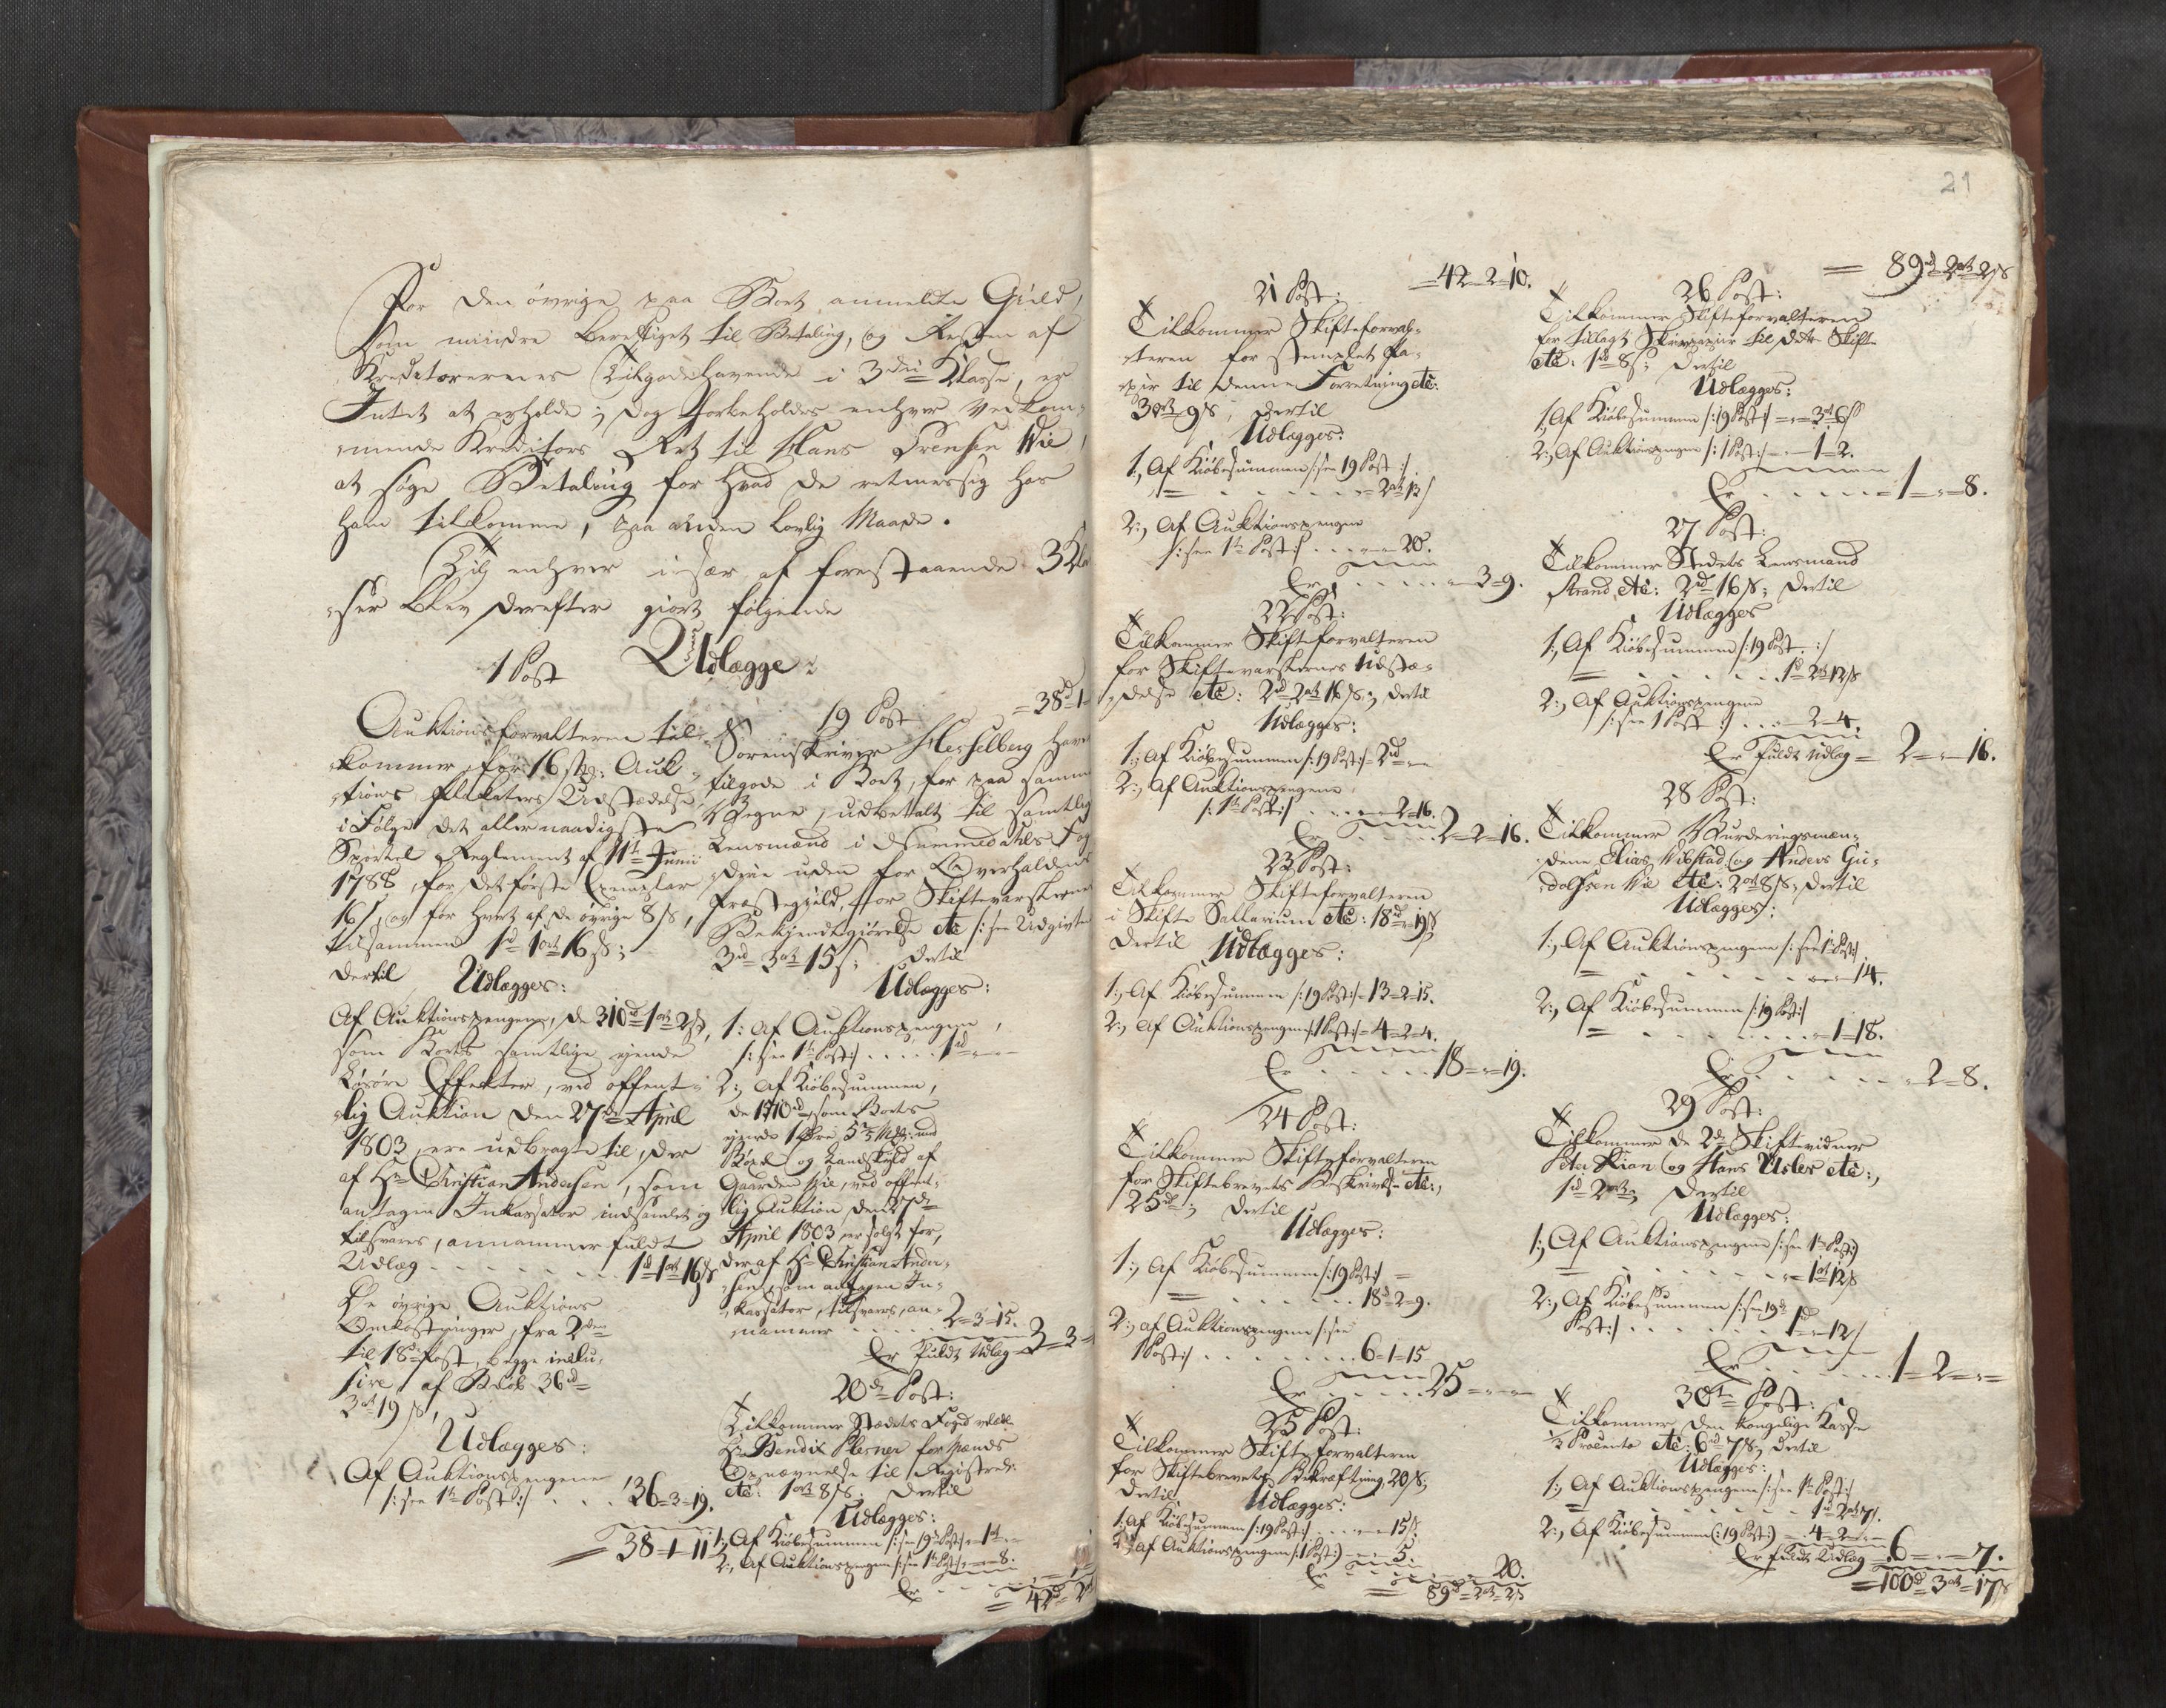 For den övrige paa Boet anmeldte Giæld,
som mindre berettiget til Betaling, og Resten af
Kreditorernes Tilgodehavende i 3die Klasse, er
Intet at erholde; dog forbeholdes enhver Vedkom-
mende Kreditors Ret til Hans Svensen Wie,
at søge Betaling for hvad de retmessig hos
ham tilkomme, paa anden lovlig Maade.
Til enhver især af forestaaende
ser blev derefter giort følgende
Udlægge:
1 Post
Auktionsforvalteren til-
kommer, for 16 st: Auk-
tions Plakaters Udstædelse,
i Følge det allernaadigste
Sportel Reglement af 11te Junii
1788, for det første Exemplar
16 s, og for hvert af de øvrige 8 s,
tilsammen 1rd 1ort 16 s;
dertil Udlægges:
Af Auktionspengene, de 310rd 1ort 2 s,
som Boets samtlige ejende
Løsöre Effekter, ved offent-
lig Auktion den 27de April
1803, ere udbragte til, der
af Hr Christian Andersen, som
antagen Inkassator indsamlet og
tilsvares, annammer fuldt
Udlæg - - - - 1rd 1ort 16 s
De övrige Auktions
Omkostninger, fra 2den
til 18de Post, begge inclu-
sive, af Beløb 36rd
3ort 19 s,
Udlægges:
Af Auktionspengene
/: see 1te Post :/ . . . 36-3-19.
= 38-1-11
19 Post = 38rd-1-
Sorenskriver Hesselberg have
tilgode i Boet, for paa samme
Vegne, udbetalt til samtlige
Lensmænd i Nummedahls Fog-
derie uden for Overhaldens
Præstegield, for Skiftevarslernes
Bekjendtgiørelse etc /: see Udgivte
3rd 3ort 15 s; dertil
Udlægges:
1: Af Auktionspengene,
/: see 1te Post :/ . . . . 1rd - -
2:, Af Kiöbesummen,
de 1710rd, som Boets
ejende 1 Øre
Böxel og Landskyld af
Gaarden Wie, ved offent-
lig Auktion den 27de
April 1803, er solgt for,
der af Hr Christian Ander-
sen, som antagen In-
kassator, tilsvares, an-
nammer . . . . 2-3-15.
Er fuldt Udlæg 3-3-
20de Post:
Tilkommer Stædets Foged
Hr Bendix Plesner for Mænds
Opnævnelse til Registrer:
etc: 1ort 8 s; dertil
Udlægges:
1:, Af Kiöbesummen /: see 19de Post :/ - 1ort -
2:, Af Auktionspengene /: see 1te Post :/ - - 8.
Er . . . .
= 42rd 2ort
21
= 42-2-10.
21 Post:
Tilkommer Skifteforval-
teren for stemplet Pa-
pir til denne Forretning etc:
3ort 9 s, dertil
Udlægges:
1:, Af Kiöbesummen /: see 19 Post :/
= . . . . . . 2ort 13 s
2:, Af Auktionspengene
/: see 1te Post :/ . . . . 20.
Er . . . . . - 3-9.
22 Post:
Tilkommer Skifteforvalteren
for Skiftevarslernes Udstæ-
delse etc: 2rd 2ort 16 s; dertil
Udlægges:
1:, Af Kiöbesummen /: 19 Post :/ - 2rd - -
2:, Af Auktionspengene
/: 1te Post :/ . . . . 2-16.
Er . . . . 2-2-16.
23 Post:
Tilkommer Skifteforvalteren
i Skifte Sallarium etc: 18rd - 19 s
dertil Udlægges:
1:, Af Kiöbesummen /: 19 Post :/ - 13-2-15.
2:, Af Auktionspengene /: 1 Post :/ - 4-2-4.
Er . . . . . 18 - - 19.
24 Post:
Tilkommer Skifteforvalteren
for Skiftebrevets Beskrivelse etc:,
25rd; dertil
Udlægges:
1:, Af Kiöbesummen /: 19 Post :/ =
= . . . . . . . 18rd-2-9.
2:, af Auktionspengene /: see
1 Post :/ . . . . . . . 6-1-15
Er . . . . . 25 - - -
25 Post:
Tilkommer Skifteforvalteren
for Skiftebrevets Bekræftning, 20 s;
dertil Udlægges:
1:, Af Kiöbesummen /: 19 Post :/ . . . . 15 s.
2:, af Auktionspengene /: 1 Post :/ - - 5.
Er . . . . . . 20.
= 89rd-2ort-2 s
= 89rd-2ort-2 s
26 Post:
Tilkommer Skifteforvalteren
for tillagt Skrivpapiir til dette Skifte
etc: 1rd 8 s; dertil
Udlægges:
1:, Af Kiöbesummen /: 19 Post :/ - - 3ort 6 s
2:, Af Auktionspengene /: 1 Post :/ - - 1-2.
Er . . . . . . 1 - - 8.
27 Post:
Tilkommer Stedets Lensmand
Strand, etc: 2rd 16 s; dertil
Udlægges
1:, Af Kiöbesummen /: 19 Post :/
= . . . . . . 1rd 2ort 12 s
2:, Af Auktionspengene
/: see 1 Post :/ . . . - 2-4.
Er fuldt Udlæg - 2 - - 16.
28 Post:
Tilkommer Vurderingsmæn-
dene Elias Vibstad og Anders Gu-
dolfsen Wie etc: 2ort 8 s; dertil
Udlægges:
1:, Af Auktionspengene /: see 1te Post :/
= . . . . . . . - - 14.
2:, Af Kiöbesummen /: 19 Post :/
= . . . . . . . - 1-18.
Er . . . . . . - 2-8.
29 Post:
Tilkommer de 2de Skiftevidner
Peter Kian og Hans Usler etc:,
1rd 2ort; dertil
Udlægges:
1:, Af Auktionspengene /: see 1te Post :/
= . . . . . . . - 1ort 12 s
2:, Af Kiöbesummen /: see 19de
Post :/ . . . . . . . 1rd - 12 s
Er . . . . . . 1-2 - -
30te Post:
Tilkommer den kongelige Kasse
1/2 Procento etc: 6rd 7 s, dertil
Udlægges:
1:, Af Auktionspengene /: see 1te Post :/
= . . . . . . 1rd 2ort 7 s.
2:, Af Kiöbesummen (: 19 Post :) - - 4-2 - -
Er fuldt Udlæg - 6 - - 7.
= 100rd 3ort = 17 s